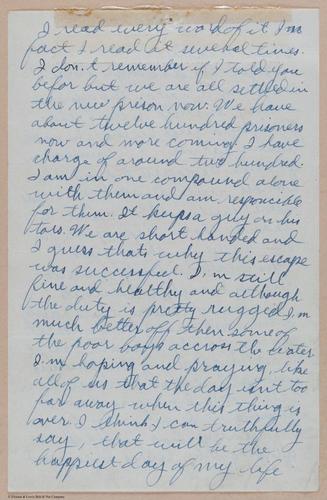 I read every word of it In
fact I read it several times.
I don,t remember if I told you
befor but we are all settled in
the new prison now. We have
about twelve hundred prisoners
now and more coming. I have
charge of around two hundred.
I am in one compound alone
with them and am responcible
for them. It keeps a guy on his
toes. We are short handed and
I guess thats why this escape
was successful. I,m still
fine and healthy and although
the duty is pretty rugged I,m
much better off then some of
the poor boys accross the water
I,m hoping and praying, like
all of us that the day isnt too
far away when this thing is
over. I think I can truthfully
say, that will be the
happiest day of my life